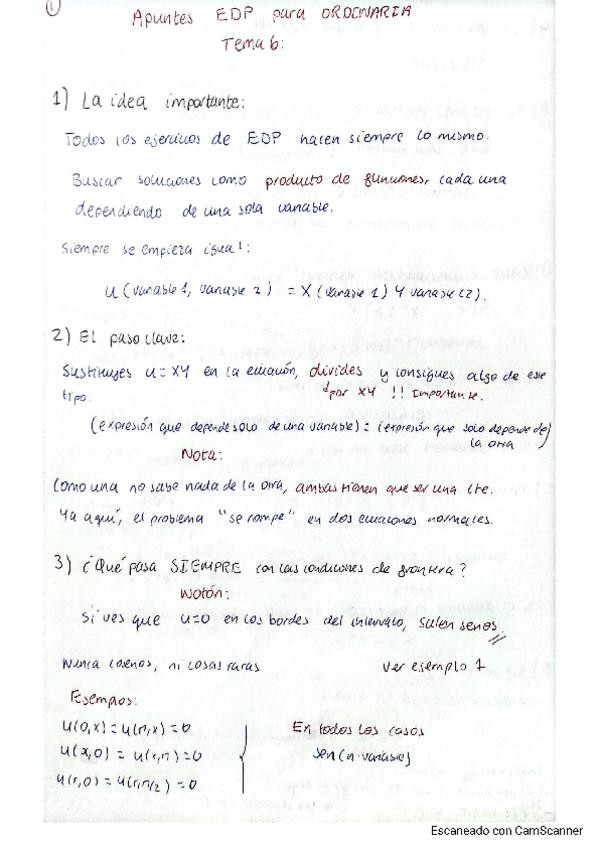 1
Apuntes EDP para ORDINARIA
Tema 6:
1) La idea importante:
Todos los ejercicios de EDP hacen siempre lo mismo.
Buscar soluciones como producto de funciones, cada una
dependiendo de una sola variable.
Siempre se empieza igual:
u (variable 1, variable 2) = X (variable 1) Y variable (2).
2) El paso clave:
Sustituyes u = XY en la ecuación, divides y consigues algo de este
tipo:
por XY !! Importante.
(expresión que depende solo de una variable) = (expresión que solo depende de
la otra)
Nota:
Como una no sabe nada de la otra, ambas tienen que ser una cte.
Ya aquí, el problema "se rompe" en dos ecuaciones normales.
3) ¿Qué pasa SIEMPRE con las condiciones de frontera?
Notón:
Si ves que u=0 en los bordes del intervalo, salen senos.
Nunca cosenos, ni cosas raras
Ver ejemplo 1
Ejemplos:
u(0,x) = u(π,x) = 0
u(x,0) = u(x,π) = 0
u(r,0) = u(r,π/2) = 0
En todos los casos
sen(n·variable)
Escaneado con CamScanner